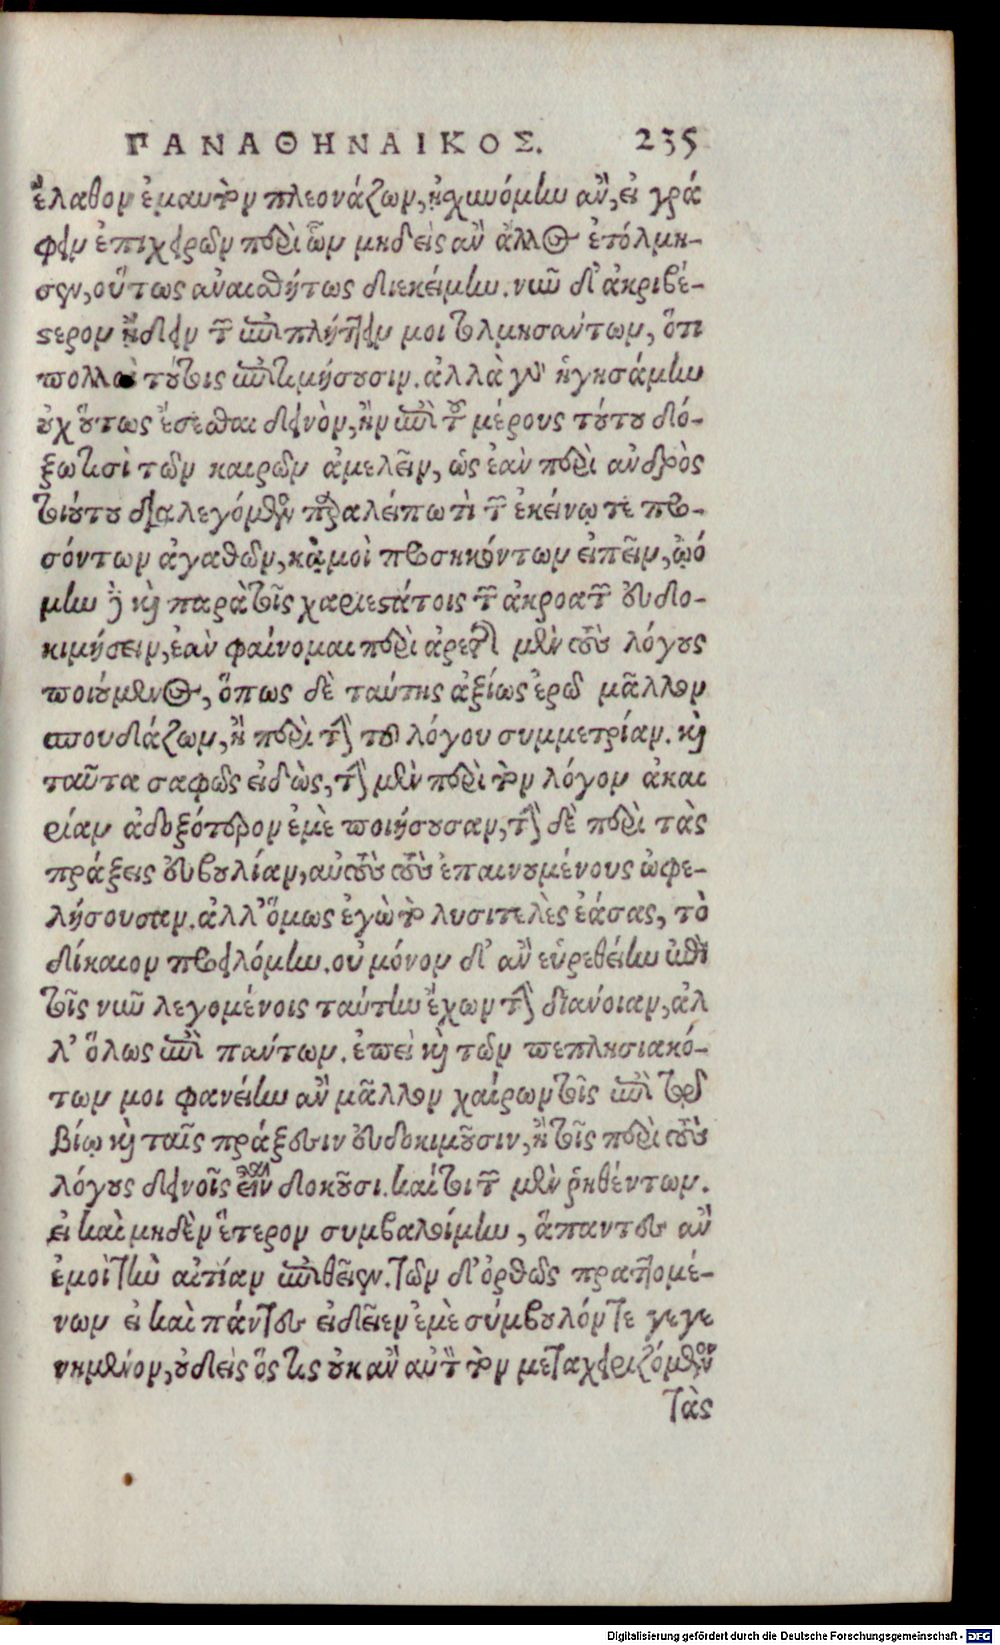 ΠΑΝΑΘΗΝΑΙΚΟΣ. 235
ἔλαθον ἐμαυτὸν πλεονάζων, ᾐσχυνόμην ἂν, εἰ γρά
φειν ἐπιχειρῶν περὶ ὧν μηδεὶς ἂν ἄλλος ἐτόλμη-
σεν, οὕτως ἀναισθήτως διεκείμην. νῦν δ' ἀκριβέ-
στερον ᾔδειν τῶν ἐπιπλήττειν μοι τολμησάντων, ὅτι
πολλοὶ τούτοις ἐπιτιμήσουσιν. ἀλλὰ γὰρ ἡγησάμην
οὐχ οὕτως ἔσεσθαι δεινὸν, ἢν ἐπὶ τοῦ μέρους τούτου δό-
ξω τισὶ τῶν καιρῶν ἀμελεῖν, ὡς ἐὰν περὶ ἀνδρὸς
τοιούτου διαλεγόμενος παραλείπω τὶ τῶν ἐκείνῳ τε προ-
σόντων ἀγαθῶν, κἀμοὶ προσηκόντων εἰπεῖν, ᾠό
μην δὲ καὶ παρὰ τοῖς χαριεστάτοις τῶν ἀκροατῶν εὐδο-
κιμήσειν, ἐὰν φαίνομαι περὶ ἀρετῆς μὲν τοὺς λόγους
ποιούμενος, ὅπως δὲ ταύτης ἀξίως ἐρῶ μᾶλλον
σπουδάζων, ἢ περὶ τὴν τοῦ λόγου συμμετρίαν. καὶ
ταῦτα σαφῶς εἰδὼς, τὴν μὲν περὶ τὸν λόγον ἀκαι
ρίαν ἀδοξότερον ἐμὲ ποιήσουσαν, τὴν δὲ περὶ τὰς
πράξεις εὐβουλίαν, αὐτοὺς τοὺς ἐπαινουμένους ὠφε-
λήσουσαν. ἀλλ' ὅμως ἐγὼ τὸ λυσιτελὲς ἐάσας, τὸ
δίκαιον προειλόμην. οὐ μόνον δ' ἂν εὑρεθείην ἐπὶ
τοῖς νῦν λεγομένοις ταύτην ἔχων τὴν διάνοιαν, ἀλ
λ' ὅλως ἐπὶ πάντων. ἐπεὶ καὶ τῶν πεπλησιακό-
των μοι φανείην ἂν μᾶλλον χαίρων τοῖς ἐπὶ τῷ
βίῳ καὶ ταῖς πράξεσιν εὐδοκιμοῦσιν, ἢ τοῖς περὶ τοὺς
λόγους δεινοῖς εἶναι δοκοῦσι. καίτοι τῶν μὲν ῥηθέντων.
εἰ καὶ μηδὲν ἕτερον συμβαλοίμην, ἅπαντες ἂν
ἐμοὶ τὴν αἰτίαν ἐπιθεῖεν. τῶν δ' ὀρθῶς πραττομέ-
νων εἰ καὶ πάντες εἰδεῖεν ἐμὲ σύμβουλόν τε γεγε
νημένον, οὐδεὶς ὅς τις οὐκ ἂν αὐτὸν τὸν μεταχειριζόμενον
τὰς
Digitalisierung gefördert durch die Deutsche Forschungsgemeinschaft - DFG